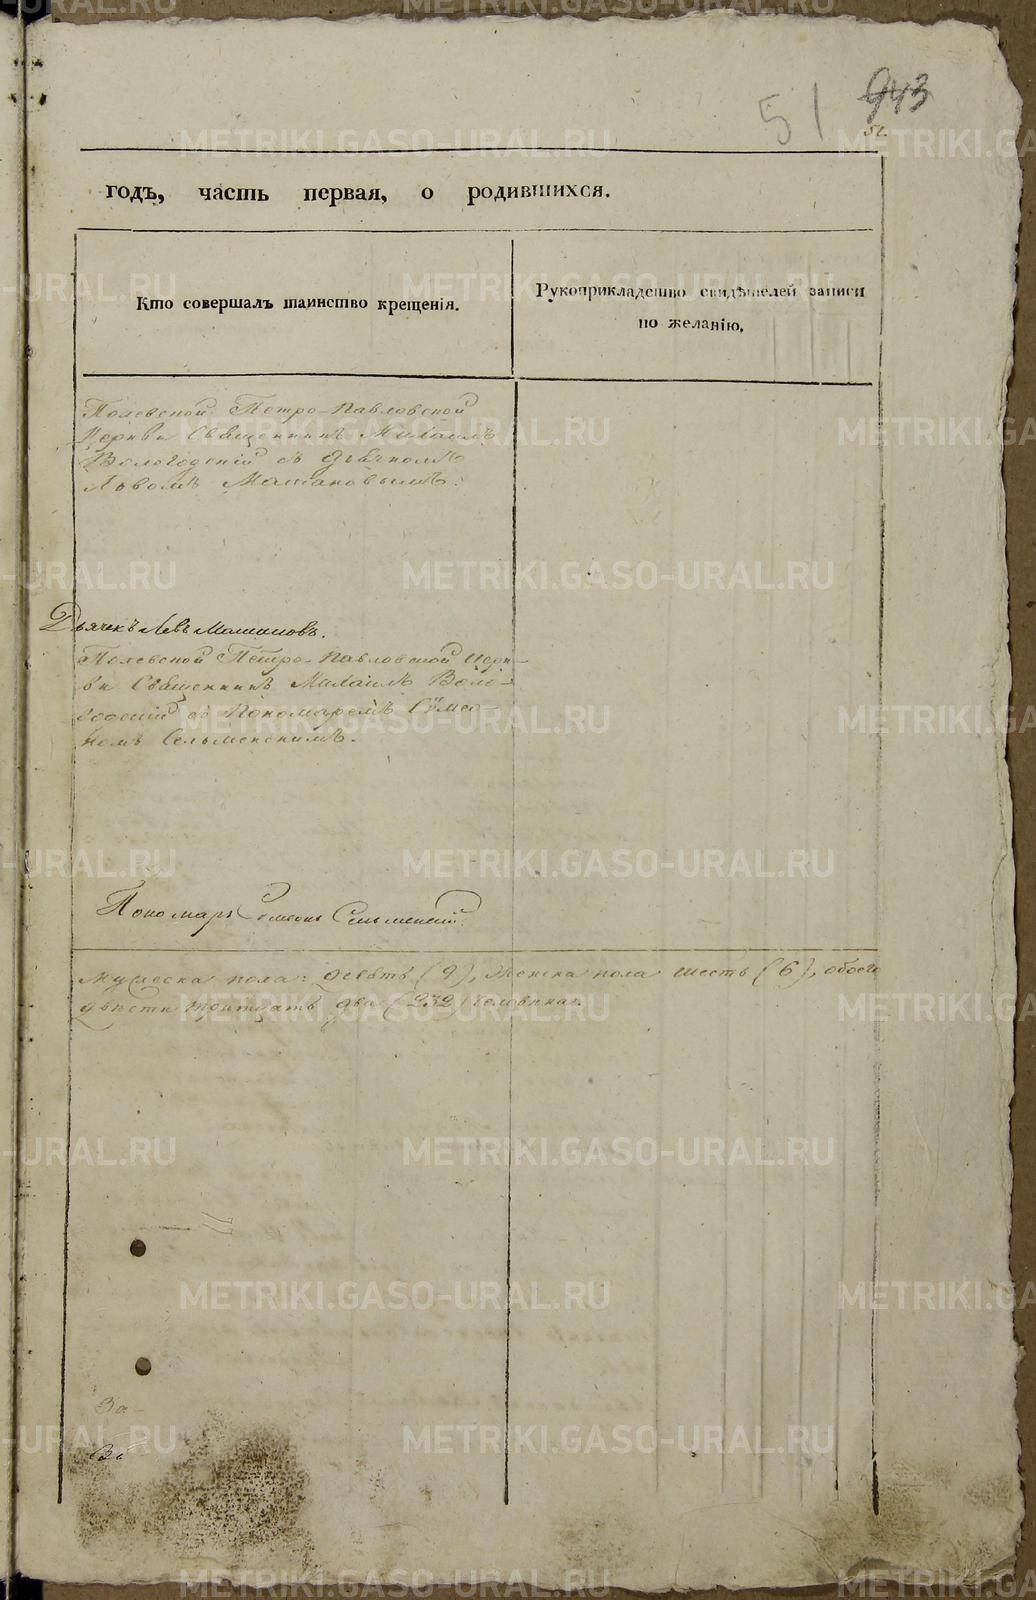 51 943
51.
годъ, часть первая, о родившихся.
Кто совершалъ таинство крещенія.
Рукоприкладство свидѣтелей записи
по желанію.
Полевской Петро-Павловской
Церкви Священникъ Михаилъ
Вологодскій съ дьячкомъ
Львомъ Маштановымъ.
Дьячекъ Левъ Маштановъ.
Полевской Петро-Павловской Церк-
ви Священникъ Михаилъ Воло-
годскій съ Пономаремъ Сѵмео-
номъ Сельменскимъ.
Пономарь Симеонъ Сельменскій
Мужеска пола: девять (9), Женска пола шесть (6), обоего
двѣсти тритцать два (232) человѣка.
За-
METRIKI.GASO-URAL.RU